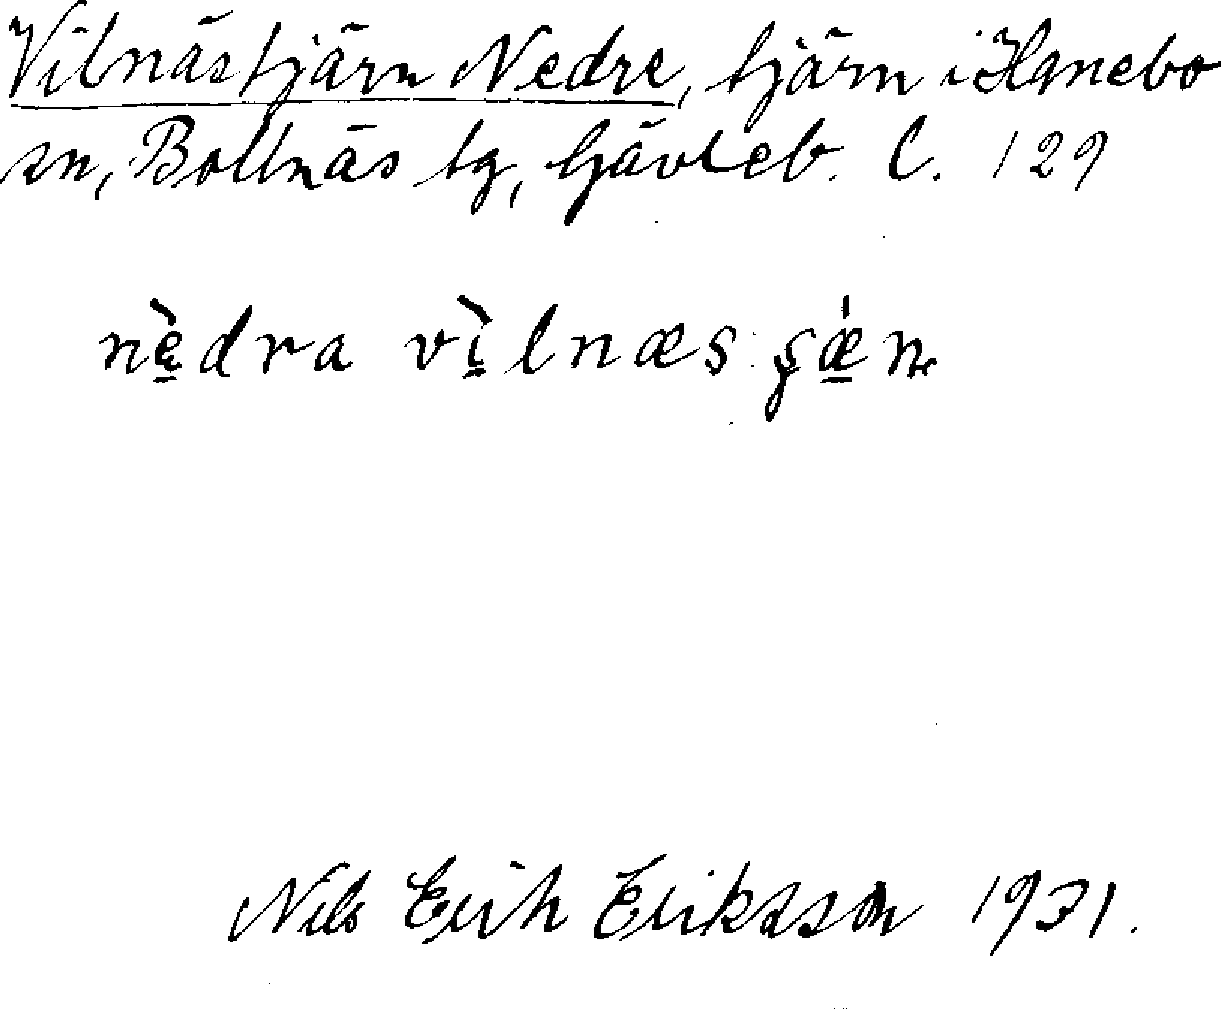 Vilnästjärn Nedre, tjärn i Hanebo
sn, Bollnäs tg, Gävleb. l. 129
nèdra vìlnæs
Nils Erik Eriksson 1931.